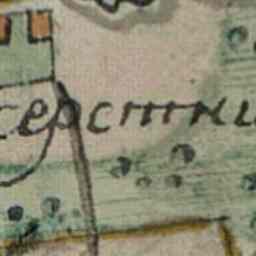 серстни